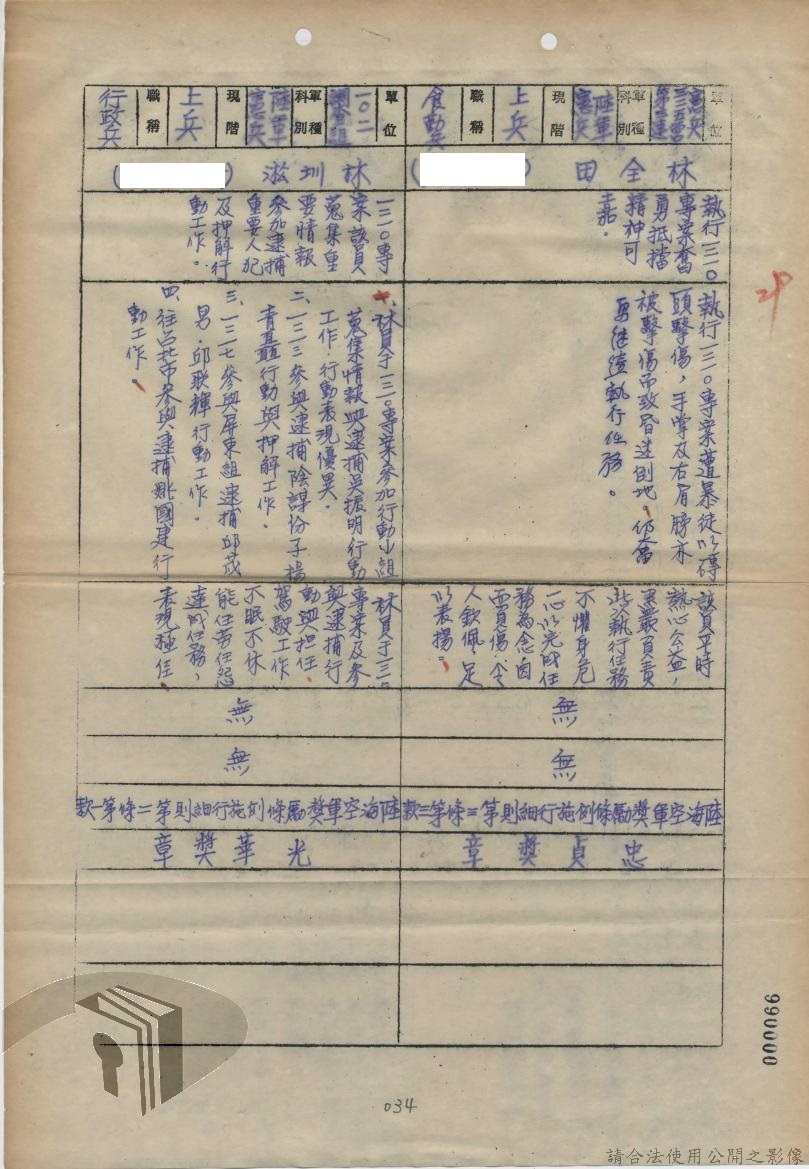 單位
憲兵
二三五營
第三連
軍種
科別
陸軍
憲兵
現階
上兵
職稱
食勤兵
林全田
(
)
執行一三〇
專案奮
勇抵擋
精神可
嘉。
執行一三〇專案遭暴徒以磚
頭擊傷,手掌及右肩膀亦
被擊傷而致昏迷倒地。仍奮
勇繼續執行任務。
該員平時
熱心公益,
累嚴負責
此次執行任務
不懼身危
一心以完成任
務為念因
而負傷,令
人欽佩足
以表揚。
無
無
陸海空軍獎勵條例施行細則第三條第三款
忠貞獎章
單位
一〇二
調查組
軍種
科別
陸軍
憲兵
現階
上兵
職稱
行政兵
林圳淞
(
)
一三〇專
案該員
蒐集重
要情報
參加逮捕
重要人犯
及押解行
動工作。
一、林員于一三〇專案參加行動小組
蒐集情報與逮捕吳振明行動
工作,行動表現優異。
二、一二三參與逮捕陰謀份子楊
青矗行動與押解工作。
三、一二七參與屏東組逮捕邱茂
男、邱聯輝行動工作。
四、往台北市參與逮捕姚國建行
動工作。
林員于一三〇
專案及參
與逮捕行
動與担任
駕駛工作
不眠不休
能任劳任怨
達成任務,
表現極佳。
無
無
陸海空軍獎勵條例施行細則第二條第一款
光華獎章
29
000066
034
請合法使用公開之影像